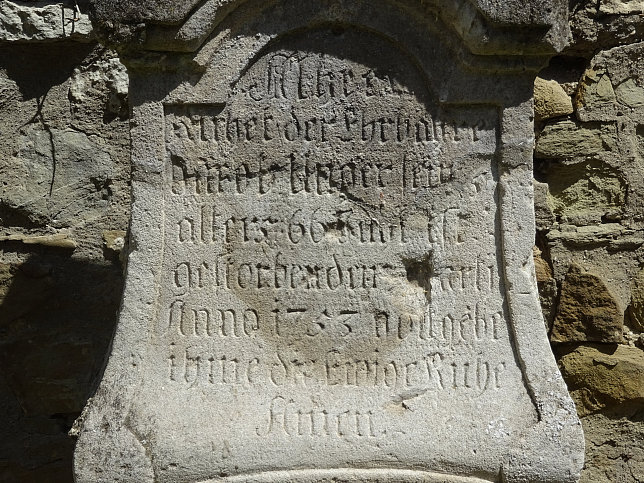 Alhie
Ruhet der Ehrbahre
Jacob
alters 66 Jahr ist
gestorben den Marti
Anno 1753 gott gebe
ihme die Ewige Ruhe
Amen